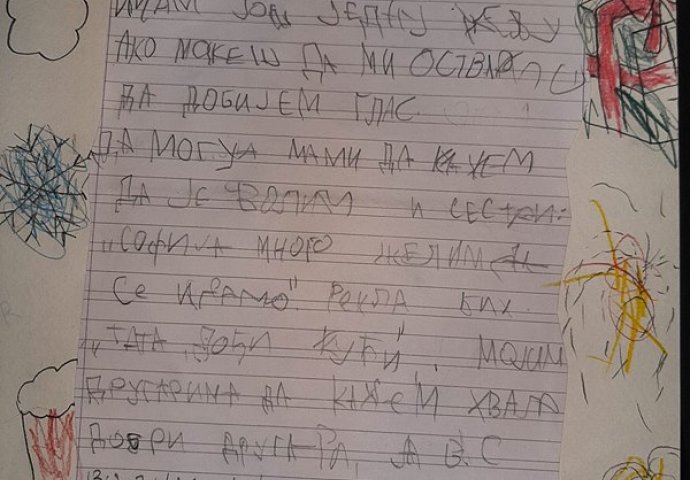 ИМАМ ЈОШ ЈЕДНУ ЖЕЉУ
АКО МОЖЕШ ДА МИ ОСТВАРИШ
ДА ДОБИЈЕМ ГЛАС
ДА МОГУ МАМИ ДА КАЖЕМ
ДА ЈЕ ВОЛИМ И СЕСТРИ:
„СОФИЈА МНОГО ЖЕЛИМ ДА
СЕ ИГРАМО" РЕКЛА БИХ
„ТАТА ДОЂИ КУЋИ".
ДРУГАРИМА ДА КАЖЕМ ХВАЛА
ДОБРИ